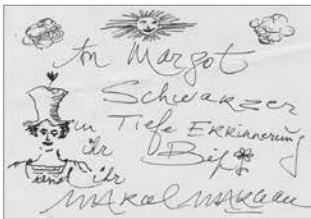 An Margot
Schwarzer
in Tiefe Erkinnerung
ihr
Bip
und ihr
Marcel Marceau